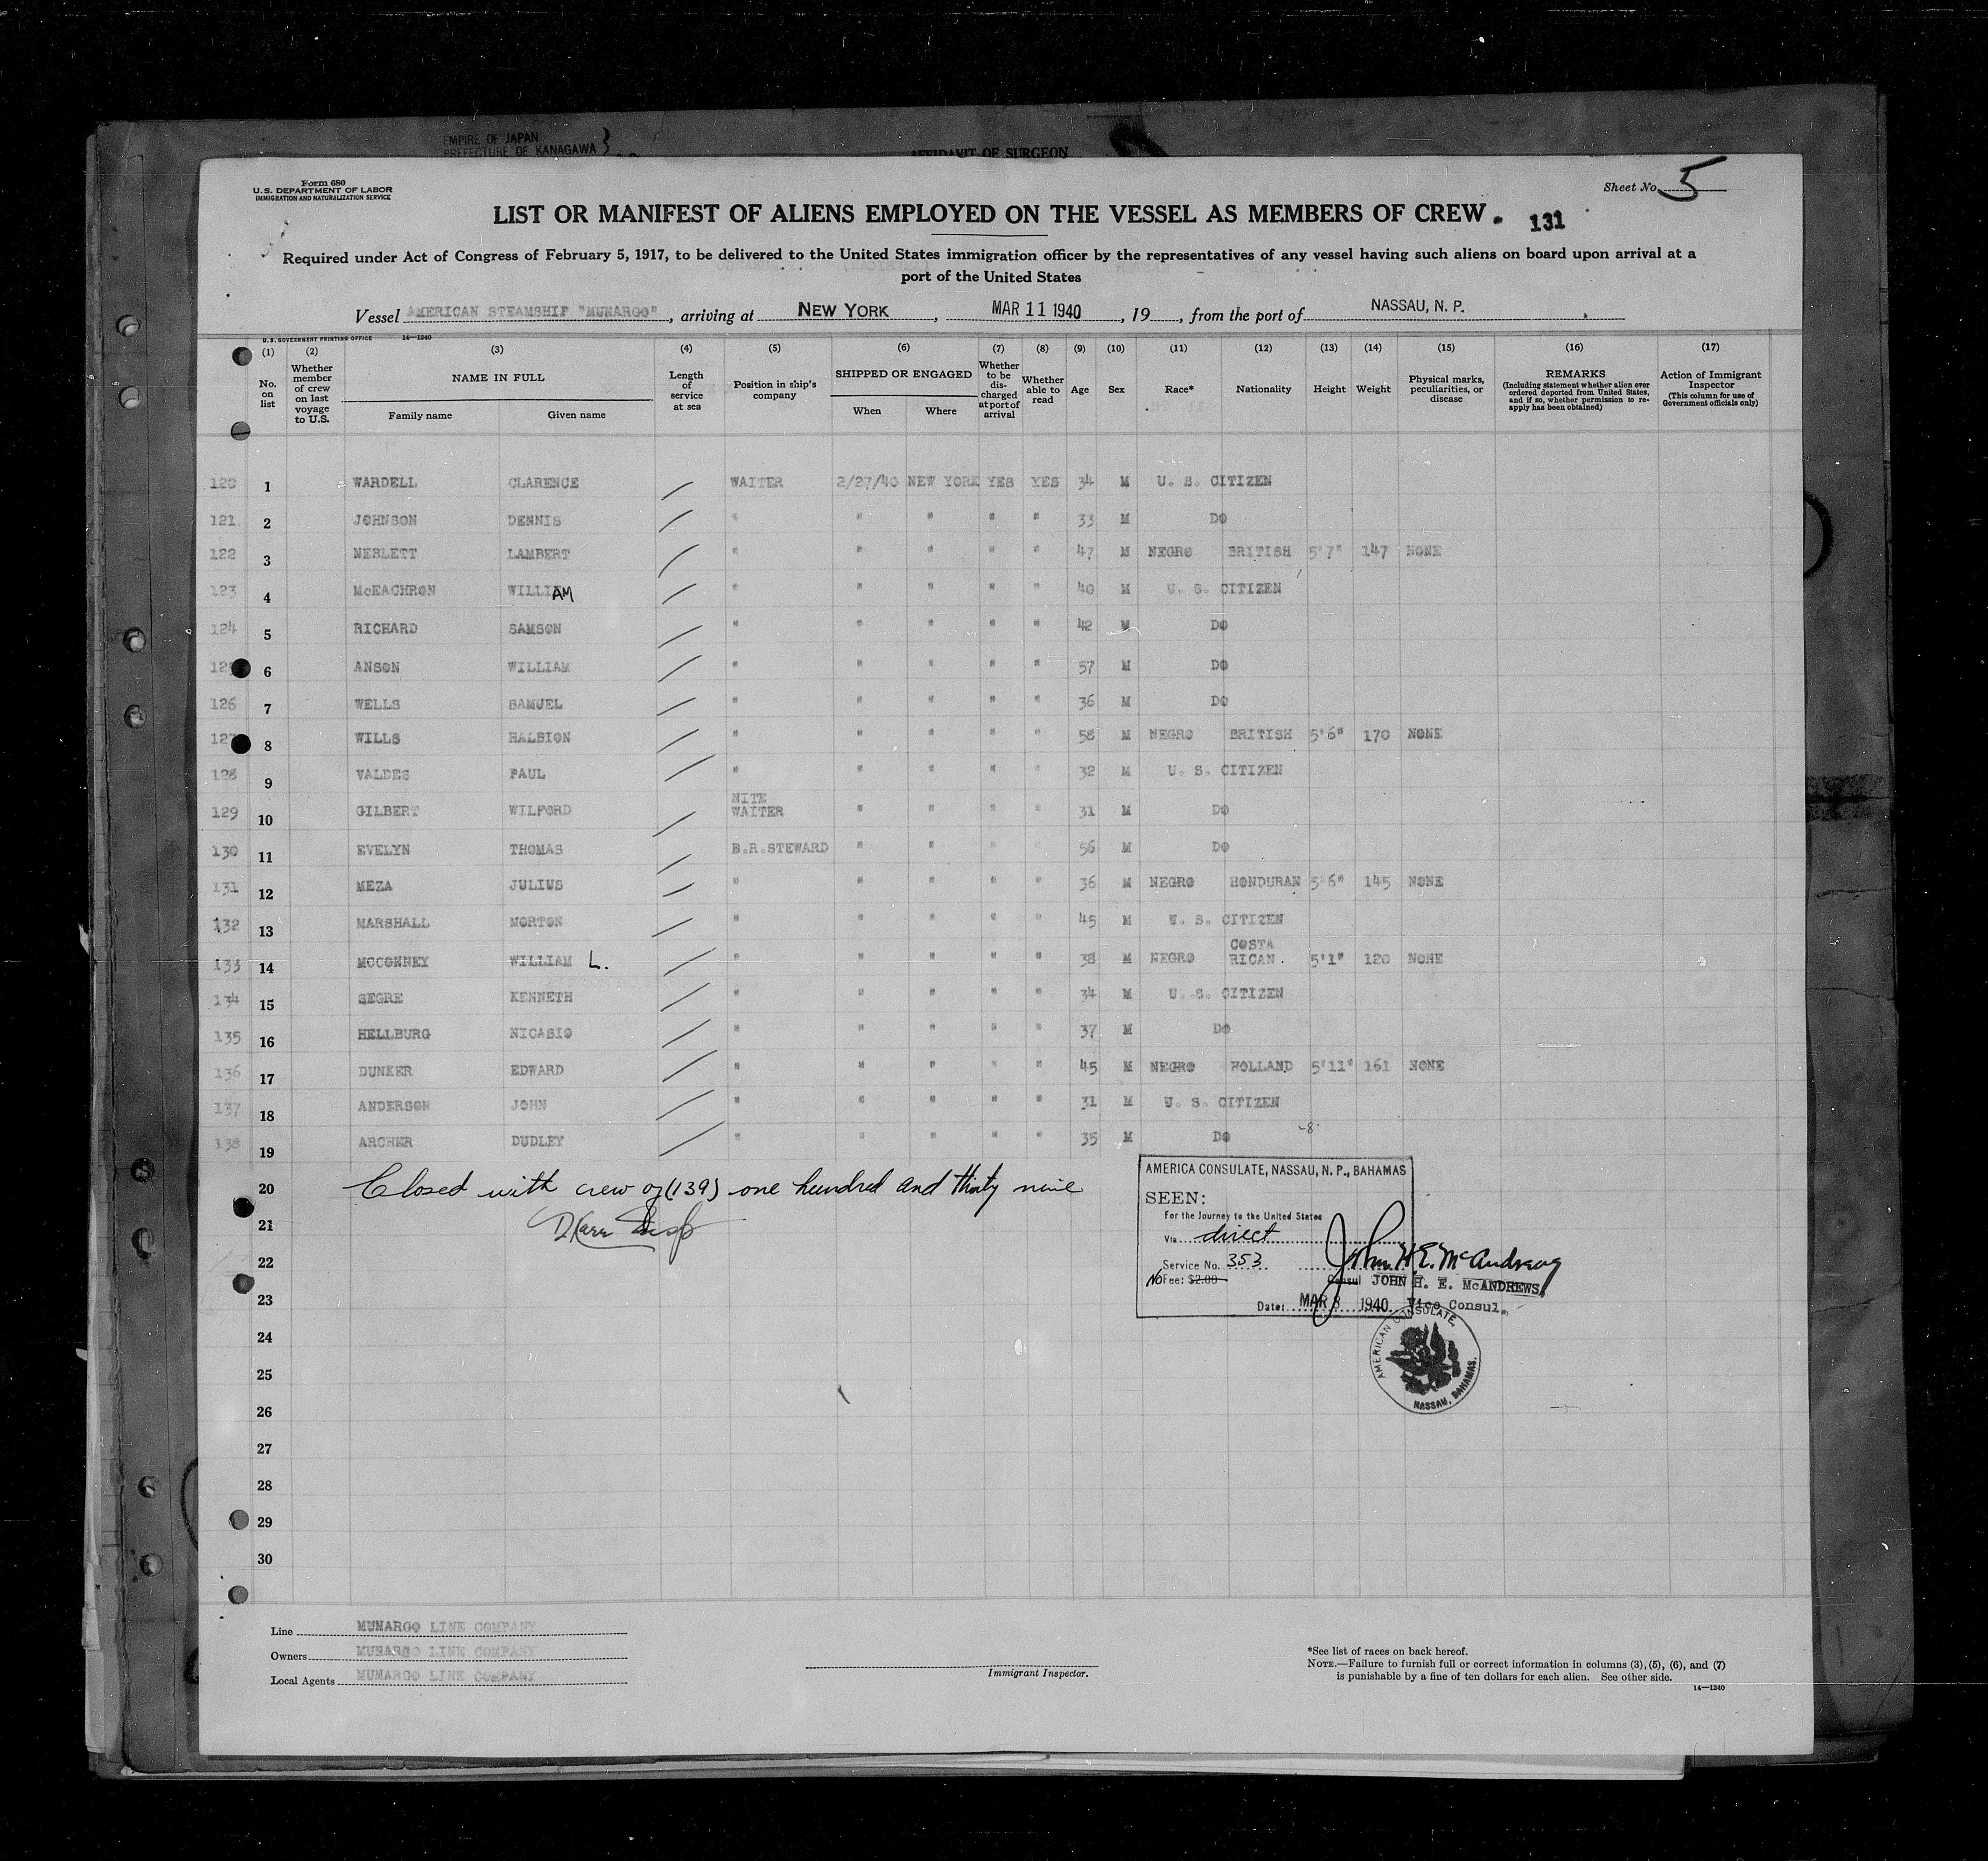 EMPIRE OF JAPAN
PREFECTURE OF KANAGAWA
AFFIDAVIT OF SURGEON
Form 680
U.S. DEPARTMENT OF LABOR
IMMIGRATION AND NATURALIZATION SERVICE
Sheet No. 5
LIST OR MANIFEST OF ALIENS EMPLOYED ON THE VESSEL AS MEMBERS OF CREW
131
Required under Act of Congress of February 5, 1917, to be delivered to the United States immigration officer by the representatives of any vessel having such aliens on board upon arrival at a
port of the United States
Vessel AMERICAN STEAMSHIP "MUNARGO", arriving at NEW YORK, MAR 11 1940, 19, from the port of NASSAU, N. P.
U.S. GOVERNMENT PRINTING OFFICE 14—1240
(1) No. on list
(2) Whether member of crew on last voyage to U.S.
(3) NAME IN FULL Family name Given name
(4) Length of service at sea
(5) Position in ship's company
(6) SHIPPED OR ENGAGED When Where
(7) Whether to be discharged at port of arrival
(8) Whether able to read
(9) Age
(10) Sex
(11) Race*
(12) Nationality
(13) Height
(14) Weight
(15) Physical marks, peculiarities, or disease
(16) REMARKS (Including statement whether alien ever ordered deported from United States, and if so, whether permission to reapply has been obtained)
(17) Action of Immigrant Inspector (This column for use of Government officials only)
120 1 WARDELL CLARENCE WAITER 2/27/40 NEW YORK YES YES 34 M U. S. CITIZEN
121 2 JOHNSON DENNIS " " " " " 33 M DO
122 3 NESLETT LAMBERT " " " " " 47 M NEGRO BRITISH 5'7" 147 NONE
123 4 McEACHRON WILLIAM " " " " " 40 M U. S. CITIZEN
124 5 RICHARD SAMSON " " " " " 42 M DO
125 6 ANSON WILLIAM " " " " " 57 M DO
126 7 WELLS SAMUEL " " " " " 36 M DO
127 8 WILLS HALBION " " " " " 58 M NEGRO BRITISH 5'6" 170 NONE
128 9 VALDES PAUL " " " " " 32 M U. S. CITIZEN
129 10 GILBERT WILFORD NITE WAITER " " " " 31 M DO
130 11 EVELYN THOMAS B.R.STEWARD " " " " 56 M DO
131 12 MEZA JULIUS " " " " " 36 M NEGRO HONDURAN 5'6" 145 NONE
132 13 MARSHALL MORTON " " " " " 45 M U. S. CITIZEN
133 14 MCCONNEY WILLIAM L. " " " " " 38 M NEGRO COSTA RICAN. 5'1" 120 NONE
134 15 SEGRE KENNETH " " " " " 34 M U. S. CITIZEN
135 16 HELLBURG NICASIO " " " " " 37 M DO
136 17 DUNKER EDWARD " " " " " 45 M NEGRO HOLLAND 5'11" 161 NONE
137 18 ANDERSON JOHN " " " " " 31 M U. S. CITIZEN
138 19 ARCHER DUDLEY " " " " " 35 M DO
20 Closed with crew of (139) one hundred and thirty nine
21
22
23
24
25
26
27
28
29
30
AMERICA CONSULATE, NASSAU, N. P., BAHAMAS
SEEN:
For the Journey to the United States
Via direct
Service No. 353
No Fee: $2.00
John H.E. McAndrews
Consul JOHN H. E. McANDREWS,
Date: MAR 8 1940 Vice Consul.
AMERICAN CONSULATE,
NASSAU, BAHAMAS.
Line MUNARGO LINE COMPANY
Owners MUNARGO LINE COMPANY
Local Agents MUNARGO LINE COMPANY
Immigrant Inspector.
*See list of races on back hereof.
NOTE.—Failure to furnish full or correct information in columns (3), (5), (6), and (7)
is punishable by a fine of ten dollars for each alien. See other side.
14—1240